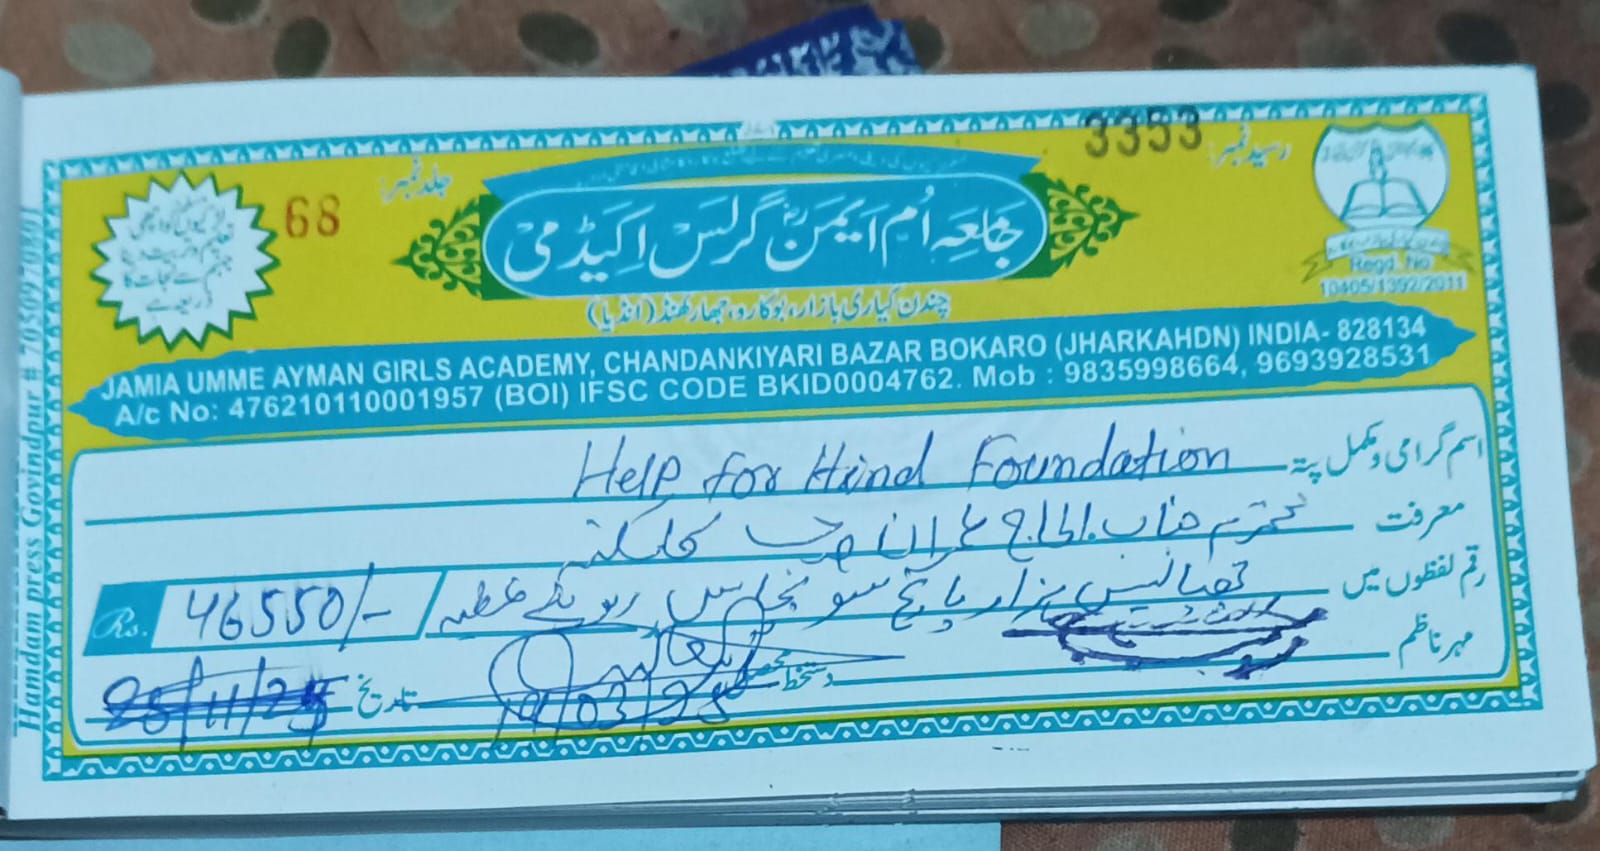 رسید نمبر: 3353
جلد نمبر: 68
جامعہ اُم ایمنؓ گرلس اکیڈمی
چندن کیاری بازار، بوکارو، جھارکھنڈ (انڈیا)
Regd. No
10405/1392/2011
JAMIA UMME AYMAN GIRLS ACADEMY, CHANDANKIYARI BAZAR BOKARO (JHARKAHDN) INDIA- 828134
A/c No: 476210110001957 (BOI) IFSC CODE BKID0004762. Mob : 9835998664, 9693928531
اسم گرامی و مکمل پتہ Help for Hind Foundation
معرفت محترم جناب الحاج عمران صاحب کلکتہ
رقم لفظوں میں چھیالیس ہزار پانچ سو پچاس روپے عطیہ
Rs. 46550/-
مہر ناظم
دستخط محصل
19/03/25
تاریخ
Hamdam press Govindpur # 7050970801